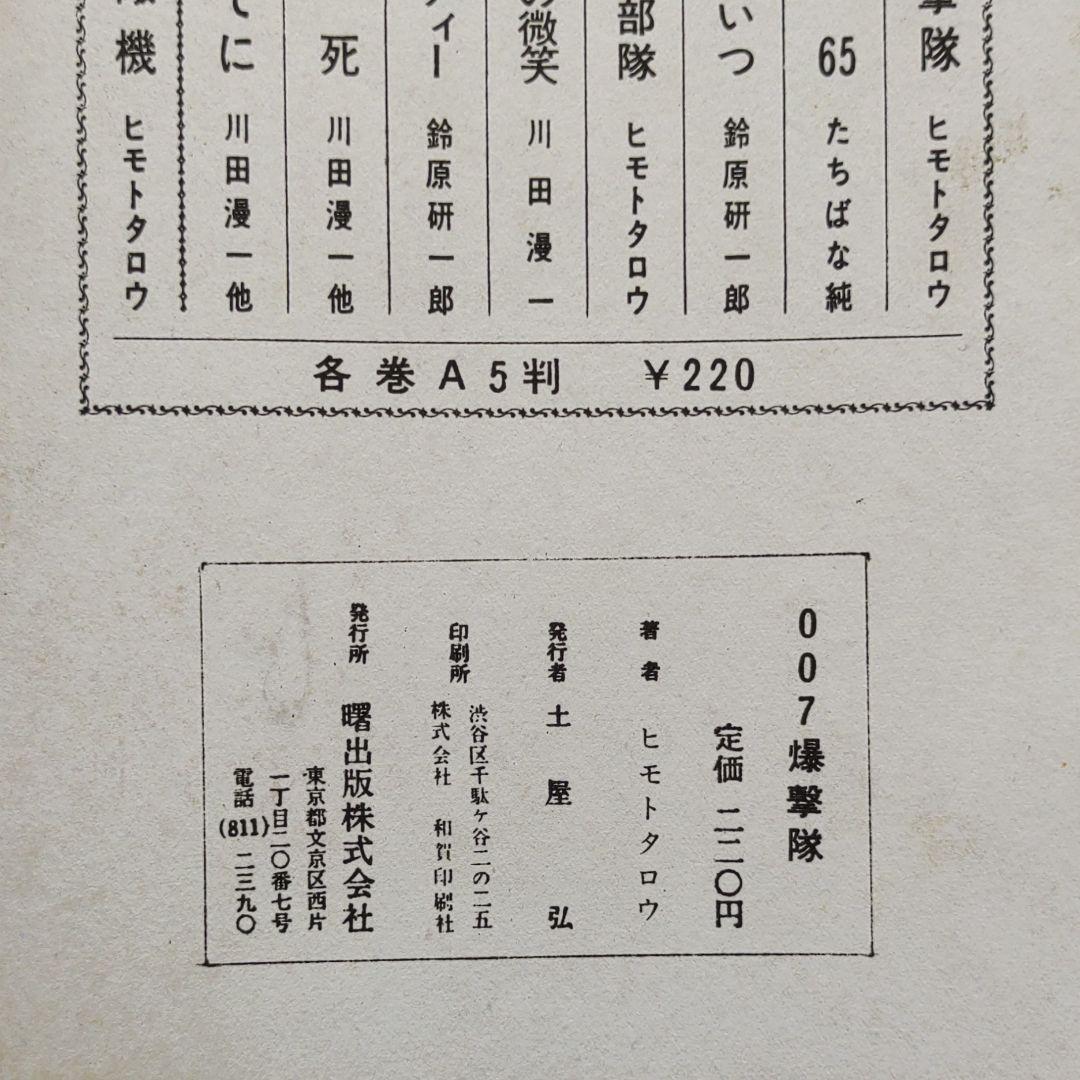 撃隊 ヒモトタロウ
65 たちばな純
いつ 鈴原研一郎
部隊 ヒモトタロウ
の微笑 川田漫一
ィー 鈴原研一郎
死 川田漫一他
てに 川田漫一他
機 ヒモトタロウ
各巻A5判 ¥220
007爆撃隊
定価 二二〇円
著者 ヒモトタロウ
発行者 土屋弘
印刷所 渋谷区千駄ヶ谷二の二五
株式会社 和賀印刷社
発行所 曙出版株式会社
東京都文京区西片
一丁目二〇番七号
電話(811)二三九〇